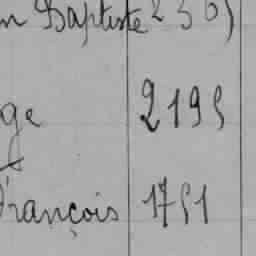 n Baptiste 2365
ge 2195
François 1751